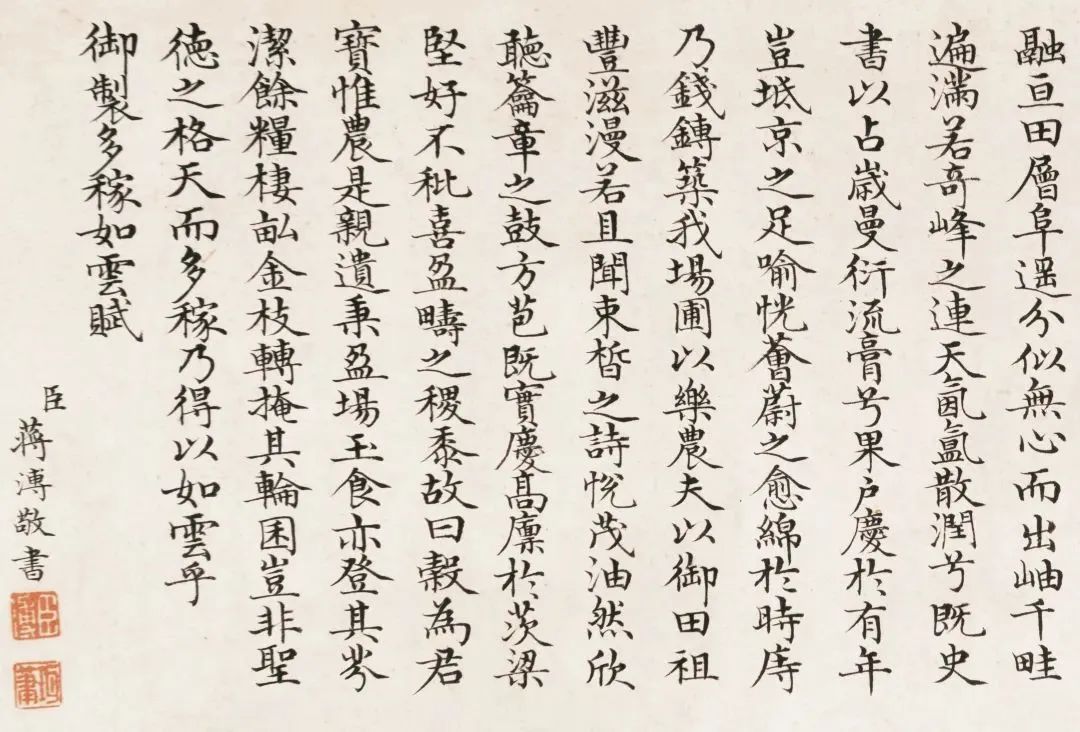 融亘田層阜遥分似無心而出岫千畦
遍滿若奇峰之連天氤氳散潤兮既史
書以占歲曼衍流膏兮果戶慶於有年
豈坻京之足喻恍薈蔚之愈綿於時庤
乃錢鎛築我場圃以樂農夫以御田祖
豐滋漫若且聞束晳之詩恱茂油然欣
聽籥章之鼓方苞既實慶髙廪於茨梁
堅好不秕喜盈疇之稷黍故曰穀為君
寶惟農是親遺秉盈場玉食亦登其岺
潔餘糧棲畝金枝轉掩其輪囷豈非聖
徳之格天而多稼乃得以如雲乎
御製多稼如雲賦
臣蔣溥敬書
臣溥